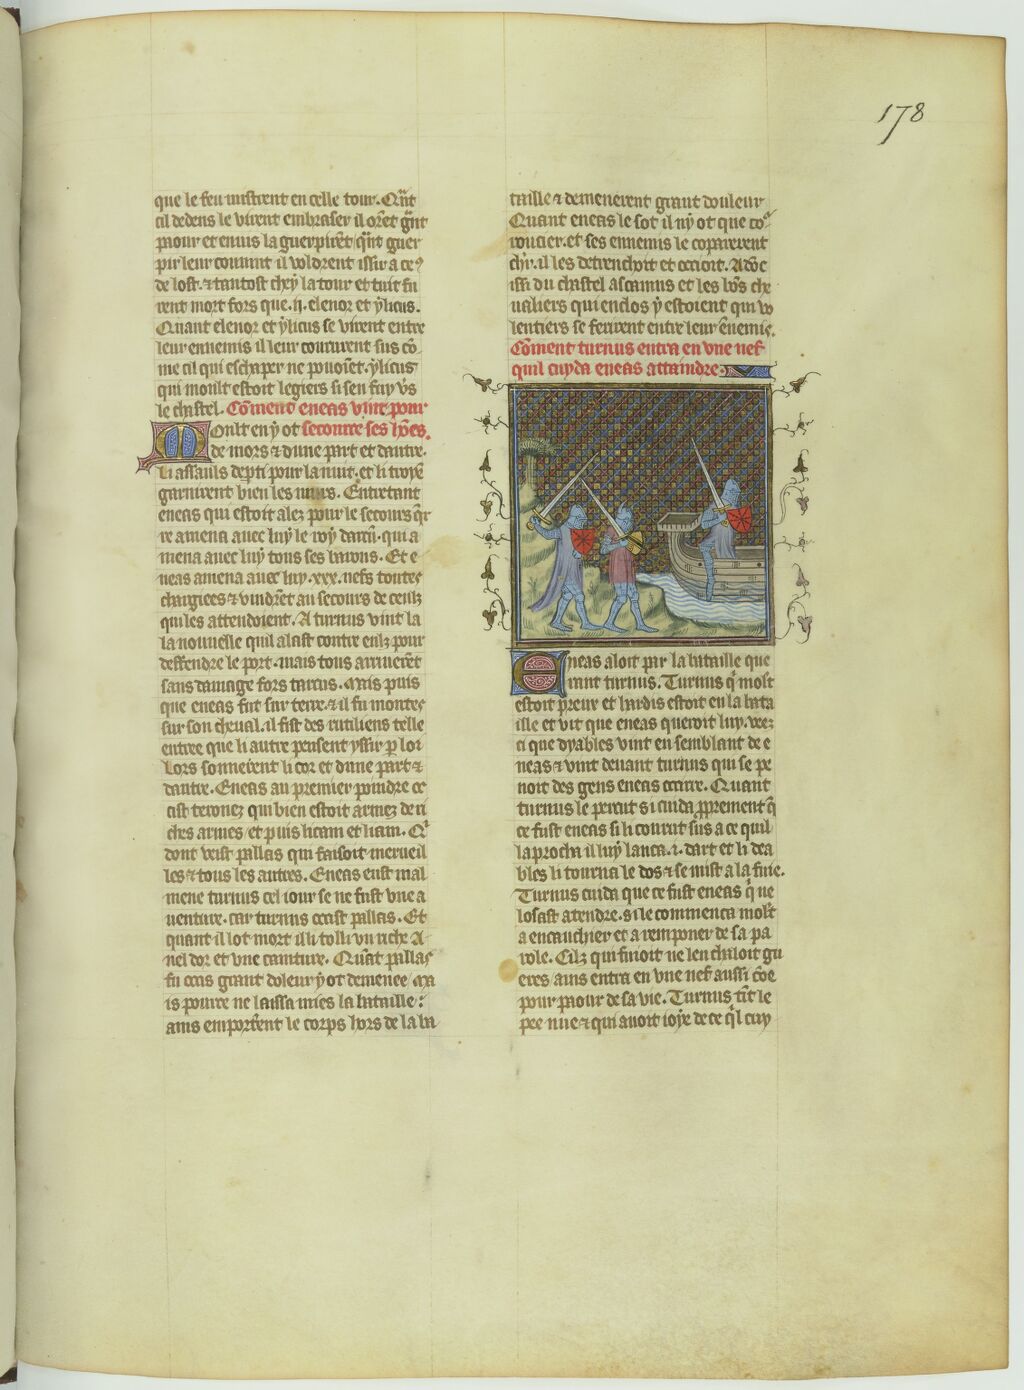 178
que le feu mistrent en celle tour. Q̃nt
cil dedens le virent embraser il orẽt g̃nt
paour et enuis la guerpirẽt q̃nt guer
pir leur couuint il voldrent issir a ceꝰ
de lost. ⁊ tantost cheÿ la tour et tuit fu
rent mort fors que .ij. elenor et ẏlicus.
Quant elenor et ẏlicus se virent entre
leur ennemis il leur coururent sus cõ
me cil qui eschaper ne pouoiẽt. ẏlicus
qui moult estoit legiers si sen fuy vs̃
le chastel. Cõment eneas vint pour
Moult en ẏ ot secourre ses hões.
de mors ⁊ dune part et dautre.
Li assauls dep̃ti pour la nuit. et li troyẽ
garnirent bien les murs. Entretant
eneas qui estoit alez pour le secours q̃r
re amena auec luẏ le roẏ qui a
mena auec luẏ tous ses barons. Et e
neas amena auec luẏ .xxx. nefs toutes
chargiees ⁊ vindrẽt au secours de ceulz
qui les attendoient. A turnus vint la
la nouuelle quil alast contre eulz pour
deffendre le port. mais tous arriuerẽt
sans damage fors tarcus. Mais puis
que eneas fut sur terre. ⁊ il fu montes
sur son cheual. il fist des rutiliens telle
entree que li autre pensent yssir p̱ loi
Lors sonnerent li cor et dune part ⁊
dautre. Eneas au premier poindre oc
cist teronez qui bien estoit armez de ri
ches armes et puis licam et liam.
dont veist pallas qui faisoit merueil
les ⁊ tous les autres. Eneas eust mal
mene turnus cel iour se ne fust vne a
uenture. car turnus occist pallas. Et
quant il lot mort il li tolli vn riche A
nel dor et vne cainture. Quãt pallas
fu occis grant doleur ẏ ot demenee ma
is pource ne laissa mies la bataille:
ains emportẽt le corps hors de la ba
taille ⁊ demenerent grant douleur
Quant eneas le sot il nẏ ot que co
roucier. et ses ennemis le cõparerent
chr̃. il les detrenchoit et occioit. Adõc
issi du chastel ascanius et les bõs che
ualiers qui enclos ẏ estoient qui vo
lentiers se ferirent entre leur ẽnemis.
Cõment turnus entra en vne nef
quil cuyda eneas attaindre.
Eneas aloit par la bataille que
rant turnus. Turnus q̃ molt
estoit preur et hardis estoit en la bata
ille et vit que eneas queroit luy. veez
ci que dyables vint en semblant de e
neas ⁊ vint deuant turnus qui se pe
noit des gens eneas occirre. Quant
turnus le percut si cuida p̱prement q̃
ce fust eneas si li courut sus a ce quil
laprocha il luẏ lanca .i. dart et li dea
bles li tourna le dos ⁊ se mist a la fuie.
Turnus cuida que ce fust eneas q̃ ne
losast atendre. si le commenca molt
a encauchier et a ramponer de sa pa
role. Cilz qui fuioit ne len chaloit gu
eres ains entra en vne nef aussi cõe
pour paour de sa vie. Turnus tĩt les
pee nue ⁊ qui auoit ioẏe de ce q̃l cuy